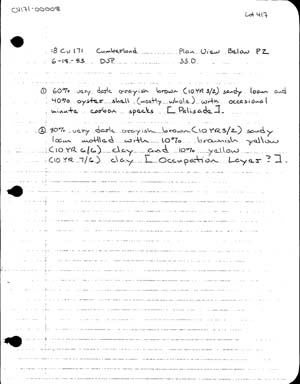 CU171-00008
Lot 417
18 CU 171 Cumberland Plan View Below PZ
6-18-83 DJP SSO
① 60% very dark grayish brown (10 YR 3/2) sandy loam and
40% oyster shell (mostly whole) with occasional
minute carbon specks [Palisade].
② 80% very dark grayish brown (10 YR 3/2) sandy
loam mottled with 10% brownish yellow
(10 YR 6/6) clay and 10% yellow
(10 YR 7/6) clay [Occupation Layer?].